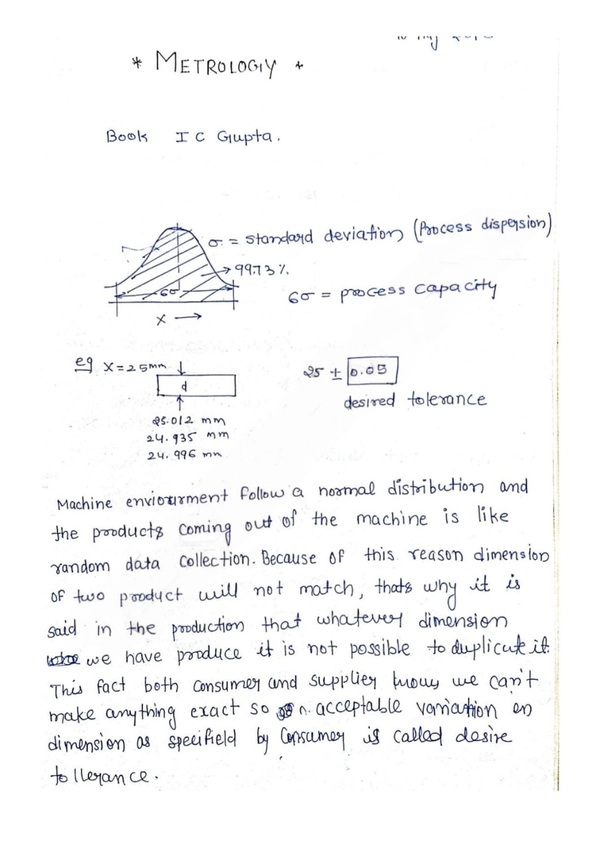 * METROLOGIY *
Book I C Gupta.
σ = standard deviation (Process dispersion)
→ 99.73 %.
6σ
6σ = process capacity
X →
eg X = 25mm ↓
25 ± 0.05
d
desired tolerance
25.012 mm
24.935 mm
24.996 mm
Machine enviourment follow a normal distribution and
the products coming out of the machine is like
random data collection. Because of this reason dimension
of two product will not match, thats why it is
said in the production that whatever dimension
we have produce it is not possible to duplicate it.
This fact both consumer and supplier know we can't
make anything exact so acceptable variation in
dimension as specifield by Consumer is called desire
tollerance.